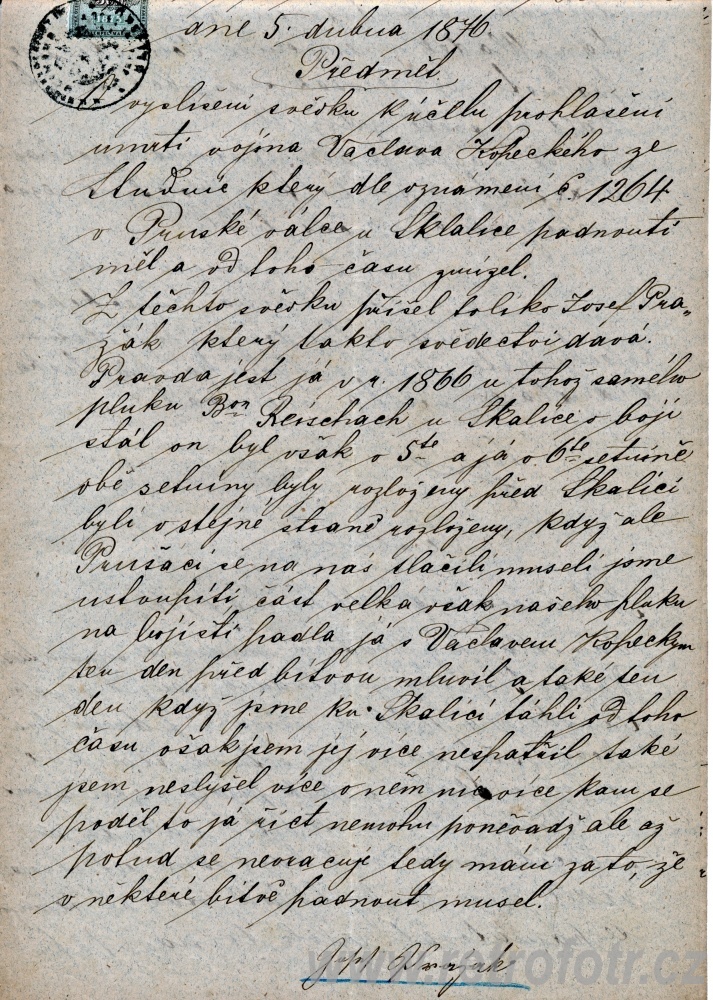 dne 5. dubna 1876
Předmět
vyslíšení svědku k účellu prohlašení
umrtí vojóna Václava Kopeckého ze
Studnic který dle oznámení č. 1264
v Pruské válce u Sklalice padnouti
měl a od toho času zmizel.
Z těchto svědku přišel toliko Josef Pra„
žák který takto svědectví dává.
Pravda jest já v r. 1866 u tohož samého
pluku Bon Reischach u Skalice v boji
stál on byl však v 5te a já v 6te setnině
obě setniny byly rozloženy před Skalicí
byli v stejné straně rozloženy, když ale
Prušaci se na nás tlačili museli jsme
ustoupiti část velká však našeho pluku
na bojišti padla já s Václavem Kopeckym
ten den před bitvou mluvil a také ten
den když jsme ku Skalici táhli od toho
času však jsem jej více nespatřil také
jsem neslyšel více o něm nic více kam se
poděl to já říct nemohu poněvadž ale až
potud se nevracuje tedy mám za to, že
v některé bitvě padnout musel.
Josef Pražák
www.retrofotr.cz